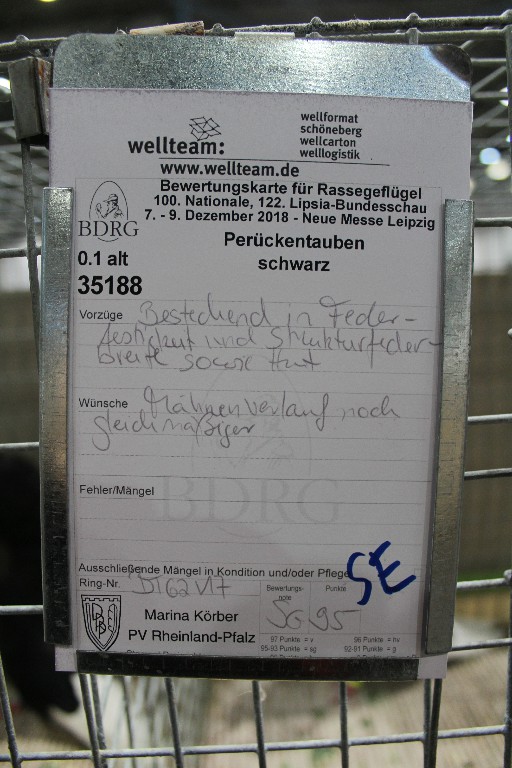 wellteam:
wellformat
schöneberg
wellcarton
welllogistik
www.wellteam.de
BDRG
Bewertungskarte für Rassegeflügel
100. Nationale, 122. Lipsia-Bundesschau
7. - 9. Dezember 2018 - Neue Messe Leipzig
Perückentauben
schwarz
0.1 alt
35188
Vorzüge Bestechend in Feder-
festigkeit und Strukturfeder-
breite sowie Hut
Wünsche Mähnenverlauf noch
gleichmäßiger
Fehler/Mängel
BDRG
Ausschließende Mängel in Kondition und/oder Pflege
SE
Ring-Nr. DT 62 V17
Bewertungs-
note
Punkte
SG 95
Marina Körber
PV Rheinland-Pfalz
97 Punkte = v
96 Punkte = hv
95-93 Punkte = sg
92-91 Punkte = g